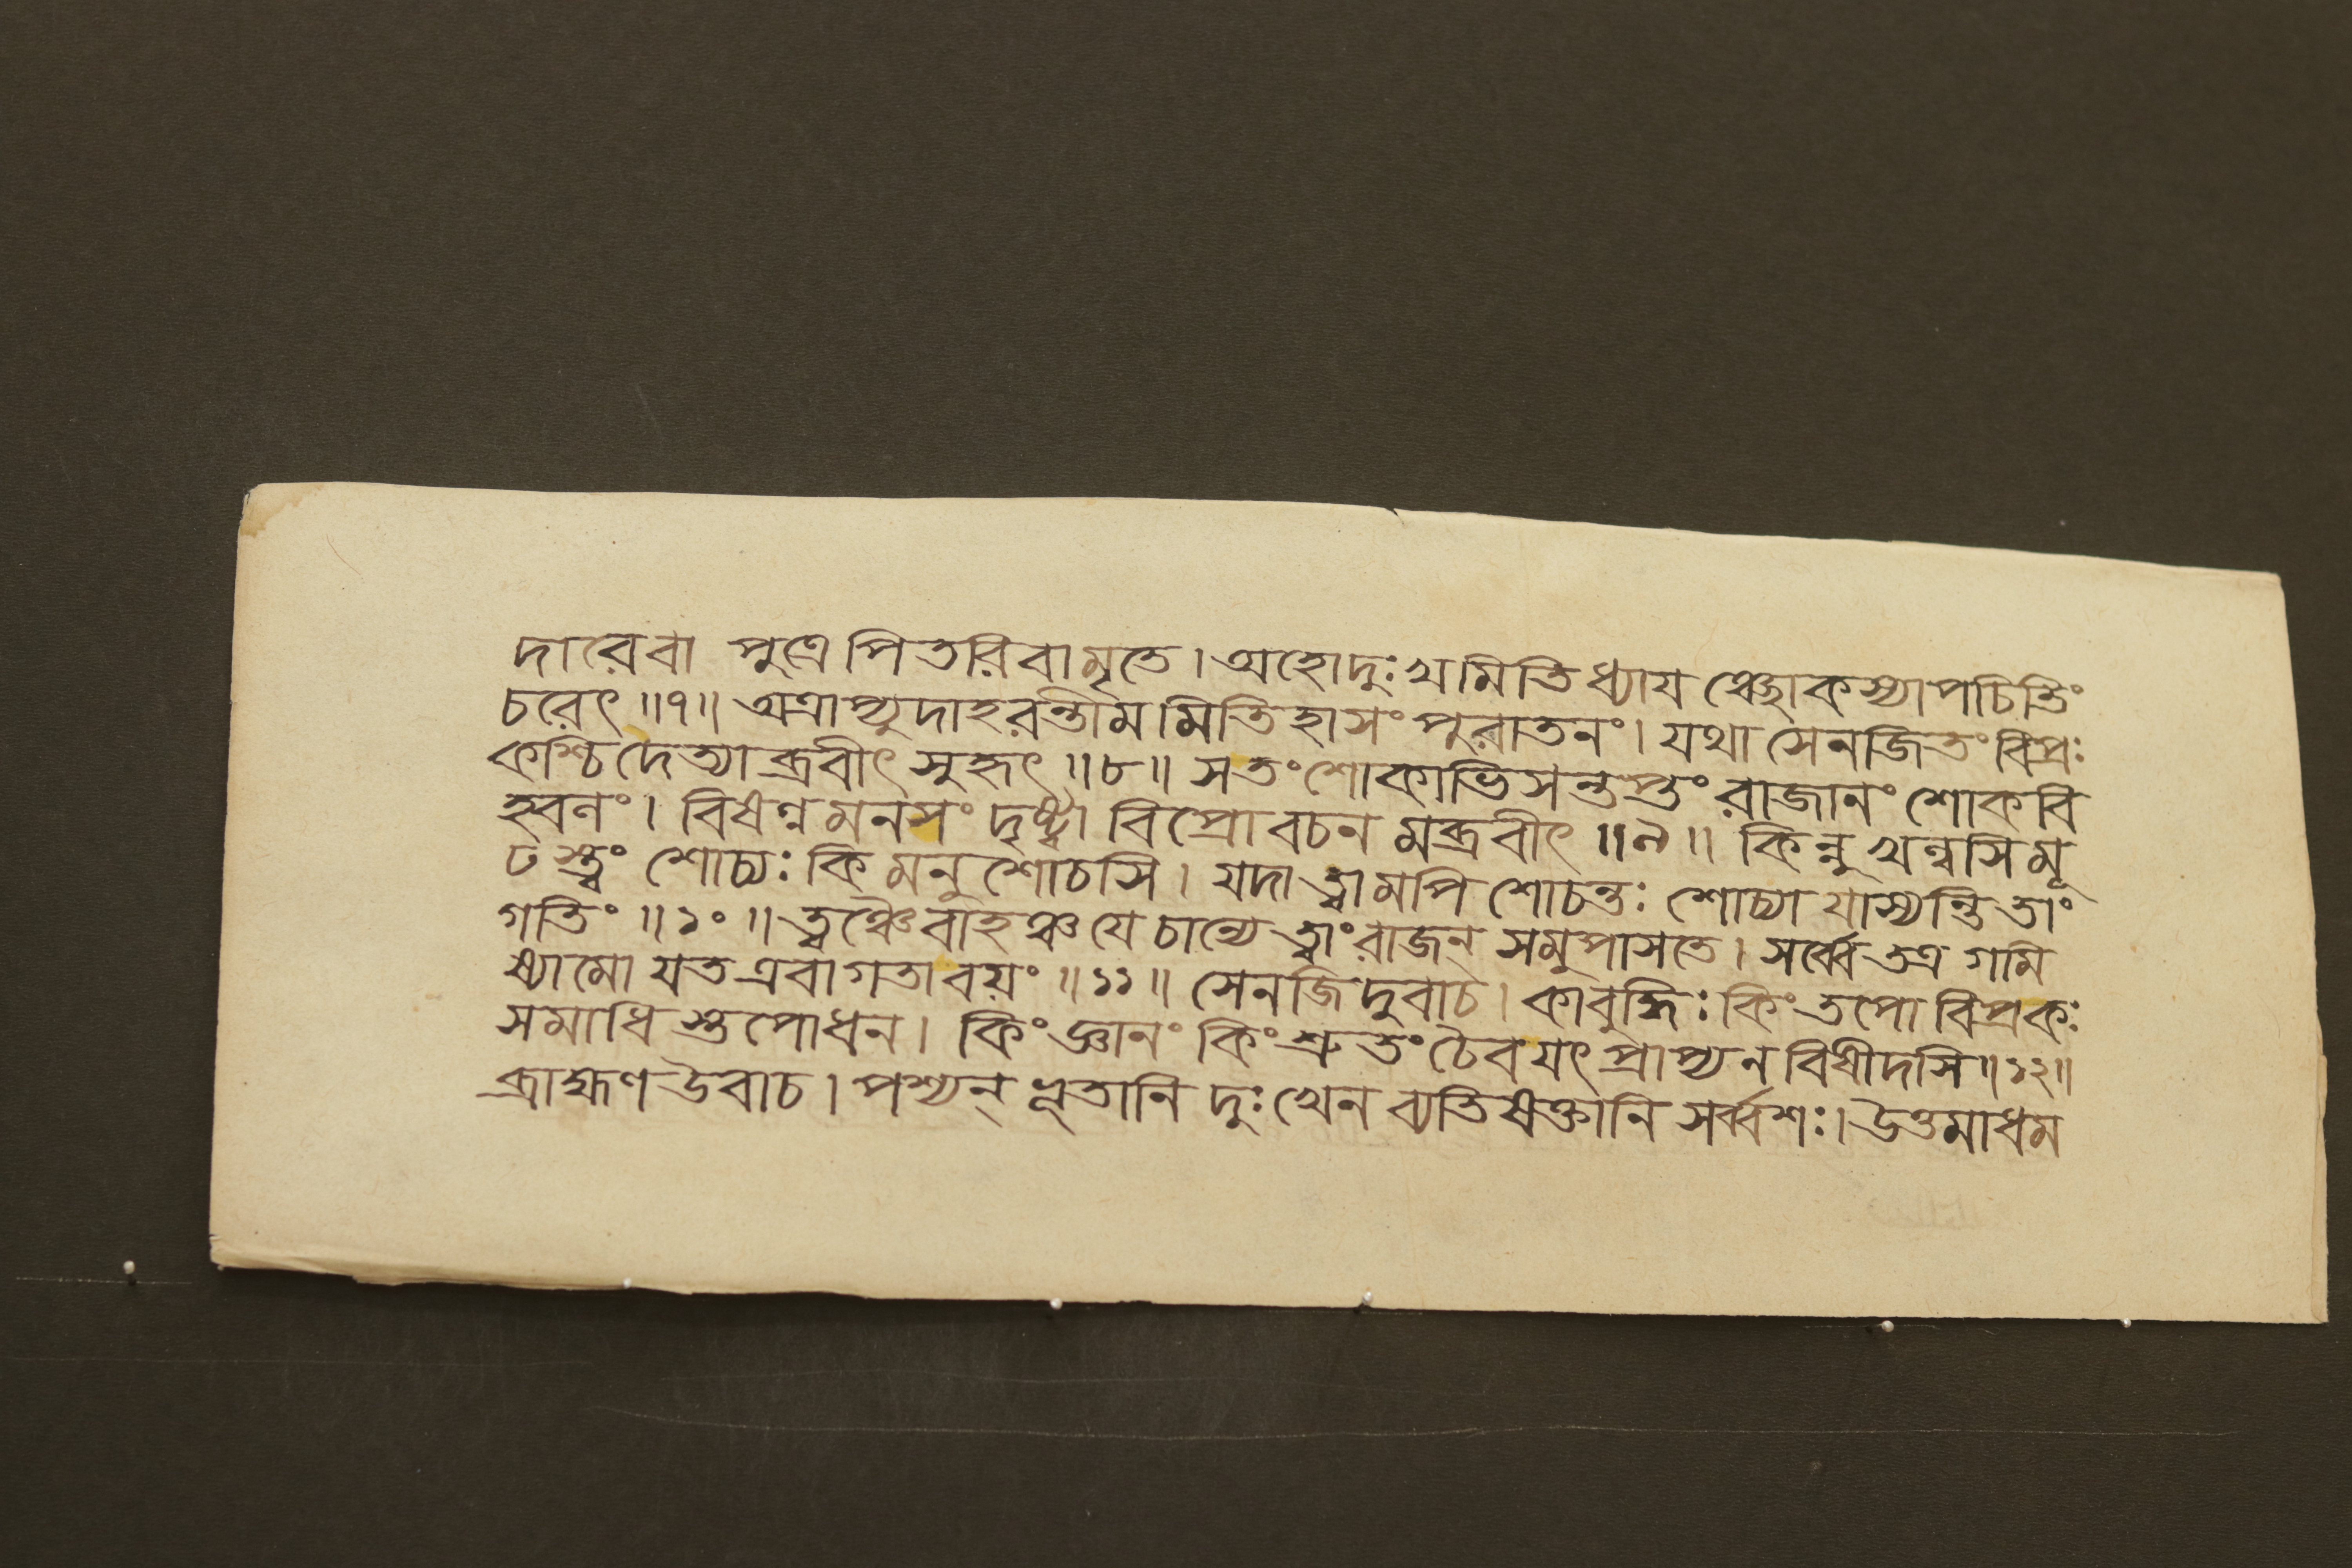 দারেবা পুত্রে পিতরিবামৃতে। অহোদুঃখমিতিধ্যায ঞ্ছোকস্যাপচিতিং
চরেৎ ॥৭॥ অত্রাপ্যুদাহরন্তীমমিতিহাসং পুরাতনং। যথা সেনজিতং বিপ্রঃ
কশ্চিদেত্যাব্রবীৎ সুহৃৎ ॥৮॥ সতং শোকাভিসন্তপ্তং রাজানং শোকবি
হ্বলং। বিষণ্ণমনসং দৃষ্ট্বা বিপ্রোবচন মব্রবীৎ ॥৯॥ কিন্নু খল্বসিমূ
ঢস্ত্বং শোচ্যঃ কিমনুশোচসি। যদা ত্বামপি শোচন্তঃ শোচ্যা যাস্যন্তি তাং
গতিং ॥১০॥ ত্বঞ্চৈবাহঞ্চ যে চান্যে ত্বাং রাজন্ সমুপাসতে। সর্ব্বে তত্র গমি
ষ্যামো যত এবাগতা বয়ং ॥১১॥ সেনজিদুবাচ। কাবুদ্ধিঃ কিং তপো বিপ্রকঃ
সমাধি স্তপোধন। কিং জ্ঞানং কিং শ্রুতং চৈব যৎ প্রাপ্য ন বিষীদসি॥১২॥
ব্রাহ্মণ উবাচ। পশ্যন্ ভূতানি দুঃখেন ব্যতিষক্তানি সর্ব্বশঃ। উত্তমাধম